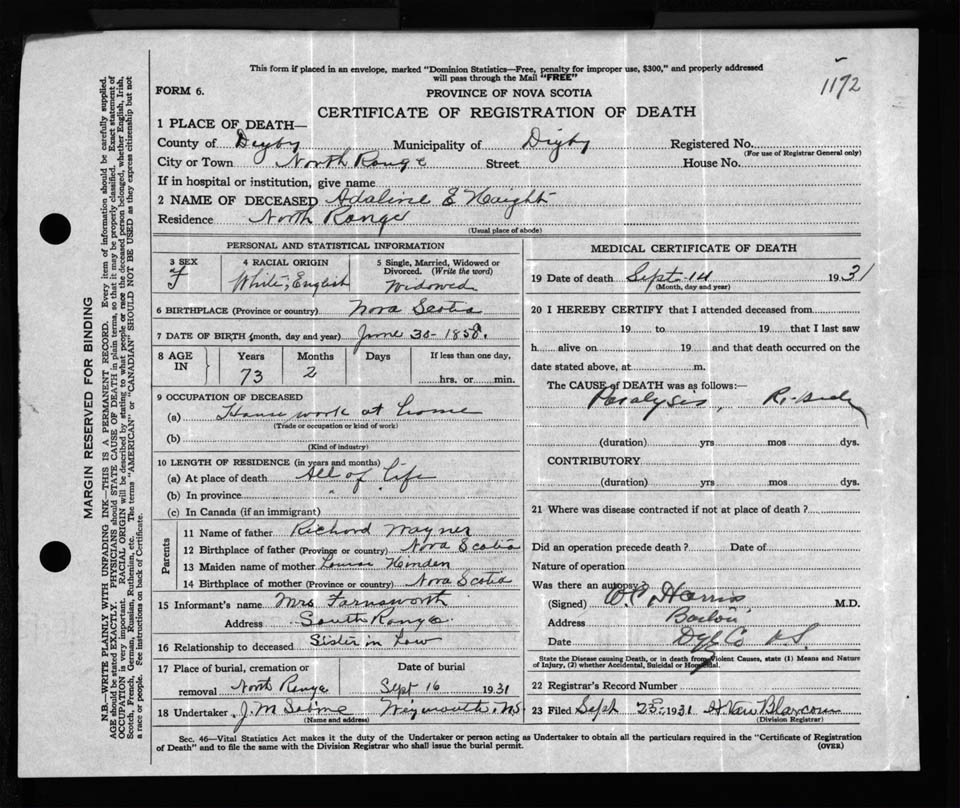 This form if placed in an envelope, marked "Dominion Statistics—Free, penalty for improper use, $300," and properly addressed
will pass through the Mail "FREE"
1172
FORM 6.
PROVINCE OF NOVA SCOTIA
CERTIFICATE OF REGISTRATION OF DEATH
1 PLACE OF DEATH—
County of Digby Municipality of Digby Registered No.
(For use of Registrar General only)
City or Town North Range Street House No.
If in hospital or institution, give name
2 NAME OF DECEASED Adaline E Haight
Residence North Range
(Usual place of abode)
PERSONAL AND STATISTICAL INFORMATION
3 SEX
F
4 RACIAL ORIGIN
White, English
5 Single, Married, Widowed or
Divorced. (Write the word)
Widowed
6 BIRTHPLACE (Province or country) Nova Scotia
7 DATE OF BIRTH (month, day and year) June 30-1858
8 AGE
IN
Years
73
Months
2
Days
If less than one day,
hrs. or min.
9 OCCUPATION OF DECEASED
(a) House work at home
(Trade or occupation or kind of work)
(b)
(Kind of industry)
10 LENGTH OF RESIDENCE (in years and months)
(a) At place of death All of Life
(b) In province " "
(c) In Canada (if an immigrant)
Parents
11 Name of father Richard Wagner
12 Birthplace of father (Province or country) Nova Scotia
13 Maiden name of mother Louisa
14 Birthplace of mother (Province or country) Nova Scotia
15 Informant's name Mrs Farnsworth
Address South Range
16 Relationship to deceased Sister in Law
17 Place of burial, cremation or Date of burial
removal North Range Sept 16 1931
18 Undertaker J. M Sabine Weymouth. NS
(Name and address)
MEDICAL CERTIFICATE OF DEATH
19 Date of death Sept-14 1931
(Month, day and year)
20 I HEREBY CERTIFY that I attended deceased from
19 to 19 that I last saw
h alive on 19 and that death occurred on the
date stated above, at m.
The CAUSE of DEATH was as follows:—
Paralysis, Rt. Side
(duration) yrs mos dys.
CONTRIBUTORY
(duration) yrs mos dys.
21 Where was disease contracted if not at place of death?
Did an operation precede death? Date of
Nature of operation
Was there an autopsy?
(Signed) Harris M.D.
Address Barton
Date Dgy Co NS
State the Disease causing Death, or in death from Violent Causes, state (1) Means and Nature
of Injury, (2) whether Accidental, Suicidal or Homicidal.
22 Registrar's Record Number
23 Filed Sept 23rd 1931 H. Van Blarcom
(Division Registrar)
Sec. 46—Vital Statistics Act makes it the duty of the Undertaker or person acting as Undertaker to obtain all the particulars required in the "Certificate of Registration
of Death" and to file the same with the Division Registrar who shall issue the burial permit.
(OVER)
MARGIN RESERVED FOR BINDING
N.B.—WRITE PLAINLY WITH UNFADING INK—THIS IS A PERMANENT RECORD. Every item of information should be carefully supplied.
AGE should be stated EXACTLY. PHYSICIANS should STATE CAUSE OF DEATH in plain terms, so that it may be properly classified. Exact statement of
OCCUPATION is very important. RACIAL ORIGIN will be described by stating to what people or race the deceased person belonged, whether English, Irish,
Scotch, French, German, Russian, Ruthenian, etc. The terms "AMERICAN" or "CANADIAN" SHOULD NOT BE USED as they express citizenship but not
a race or people. See instructions on back of Certificate.